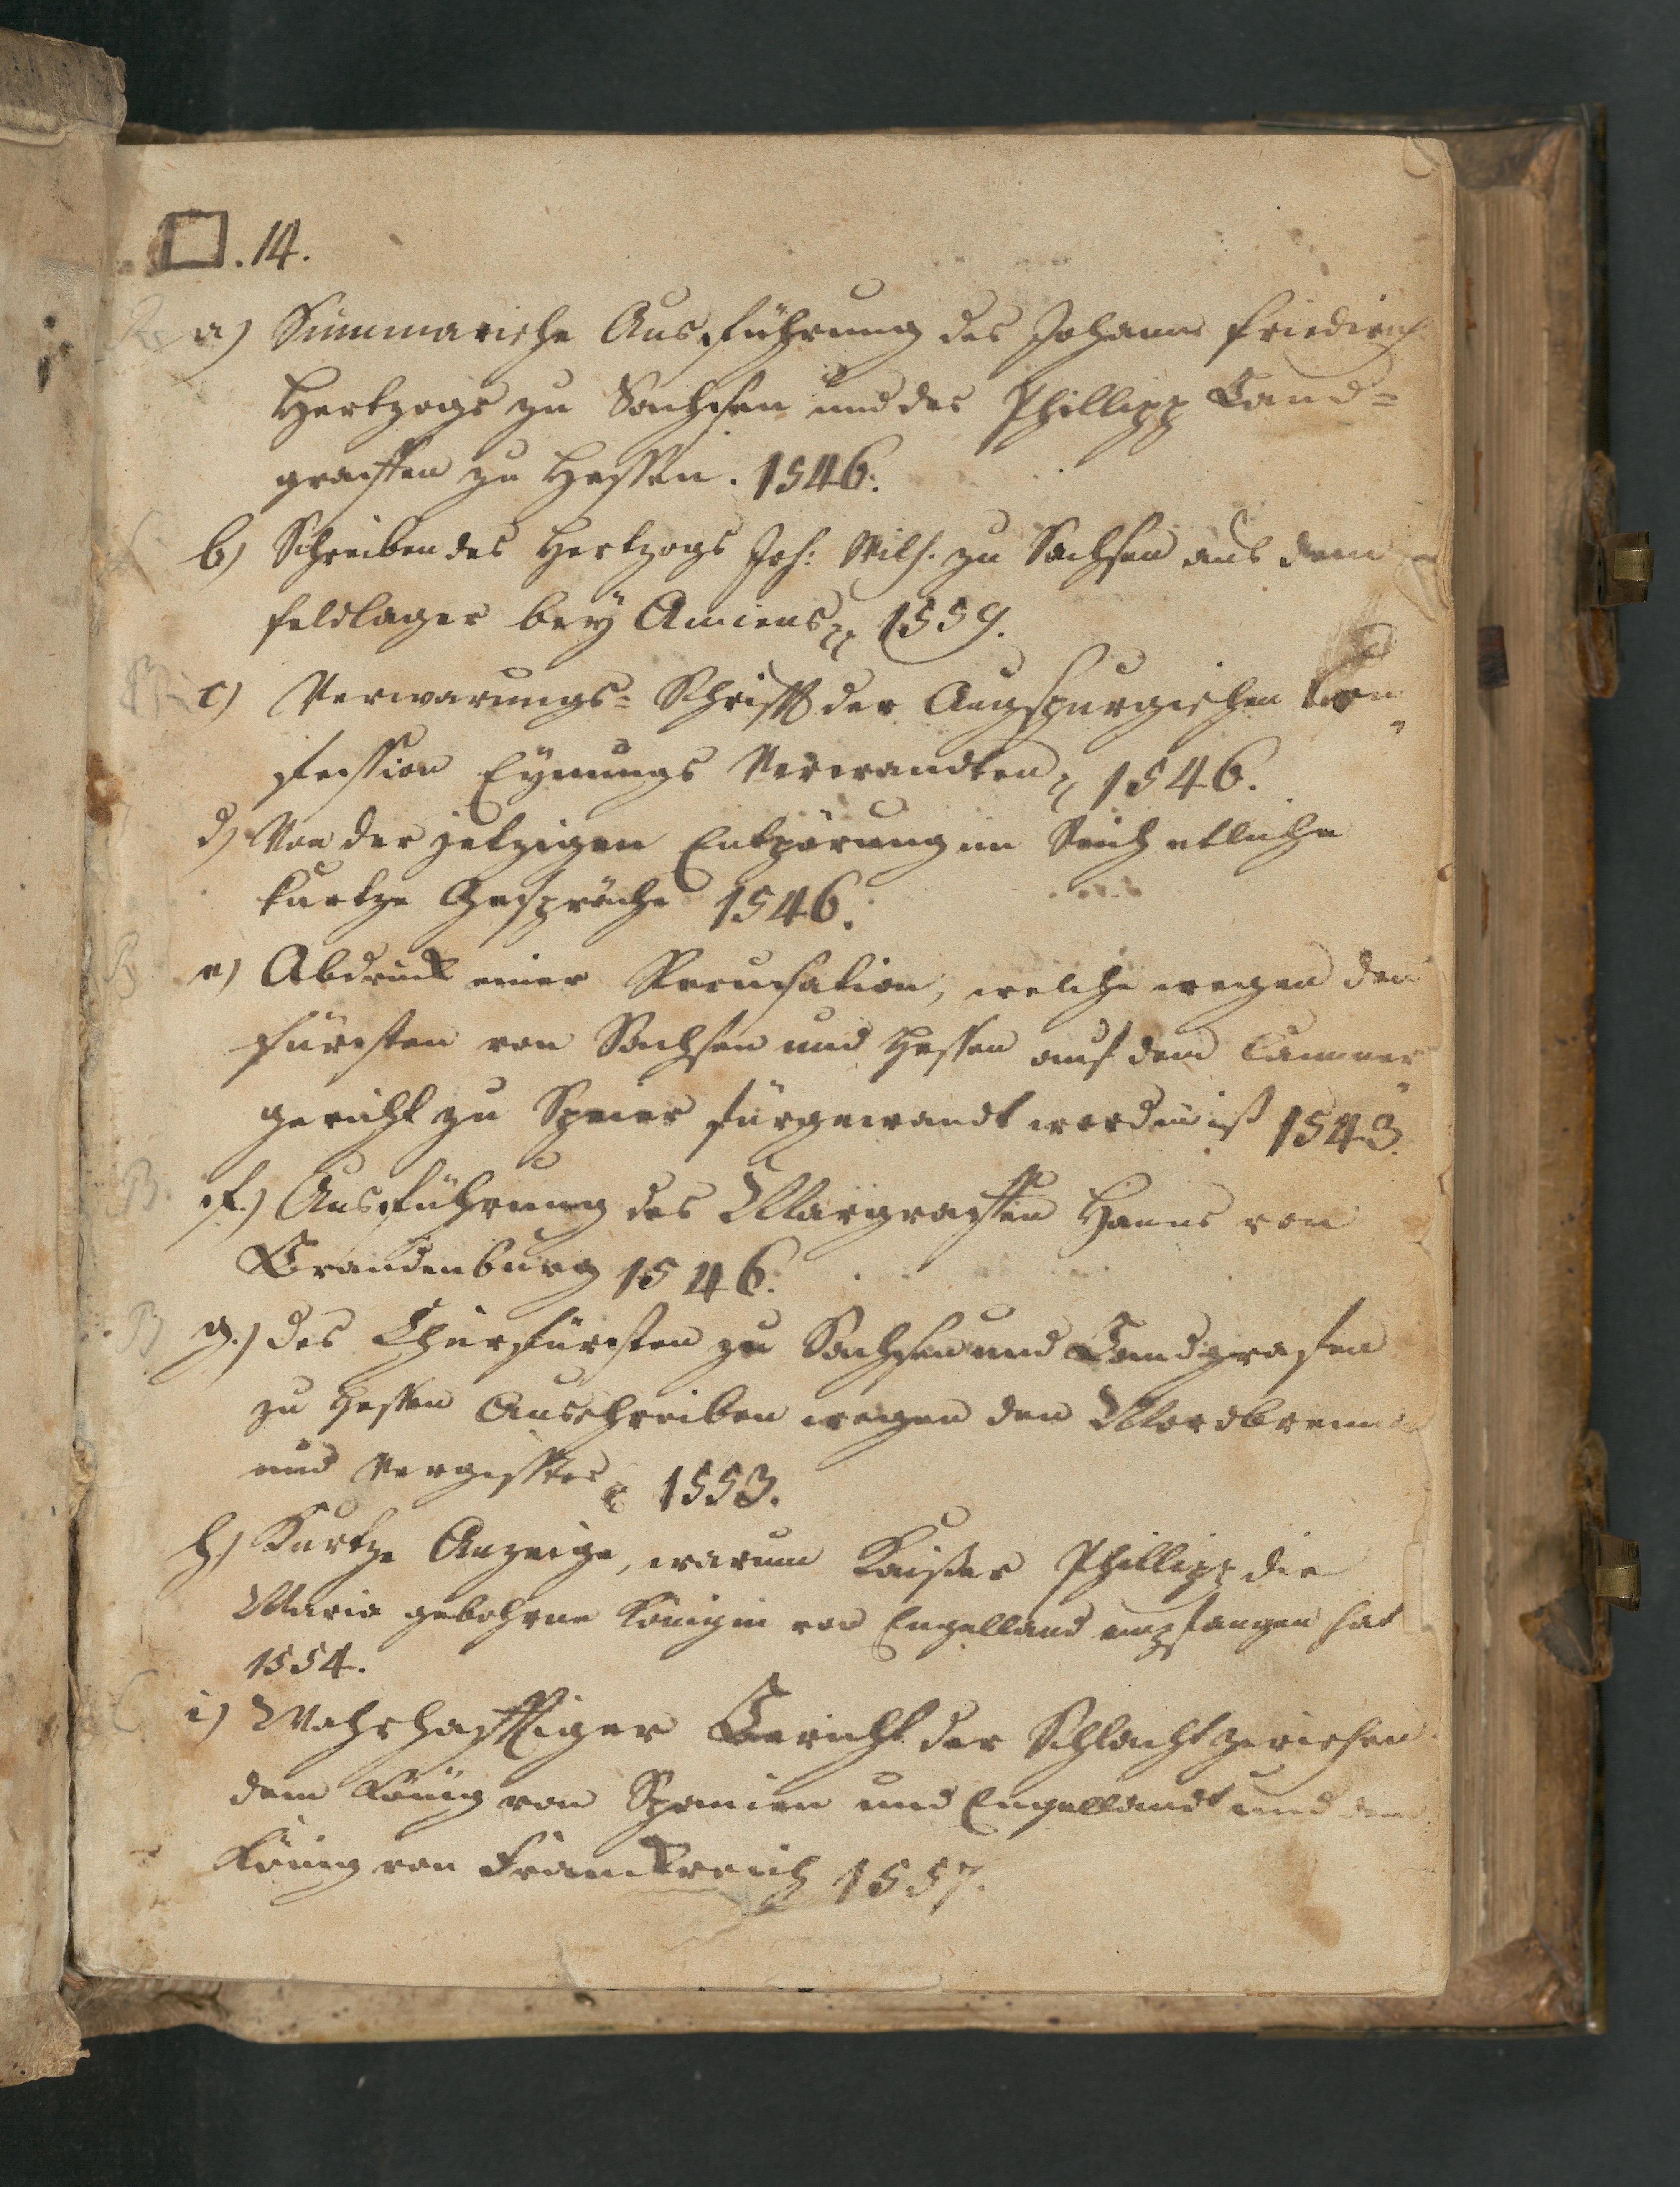 □.14.
a) Summarische Ausführung des Johann Friedrich
Hertzogs zu Sachsen und des Phillipp Land=
graffen zu Hessen. 1546.
b) Schreiben des Hertzogs Joh: Wilh. zu Sachsen aus dem
Feldlager bey Amiens 1559.
c) Verwarungs= Schrifft der Augspurgischen Con
fession Eynungs Verwandten 1546.
d) Von der jetzigen Entpörung im Reich etliche
kurtze Gespräche 1546.
e) Abdruck einer Recusation, welche wegen den
Fürsten von Sachsen und Hessen auf dem Cammer
gericht zu Speier fürgewandt worden ist 1543.
f.) Ausführung des Marggraffen Hanns von
Brandenburg 1546.
g.) des Churfürsten zu Sachsen und Landgrafen
zu Hessen Ausschreiben wegen den Mordbrenn
und Vergiffter 1553.
h.) Kurtze Anzeige, warum Kaiser Phillipp die
Maria gebohrne Königin von Engelland empfangen hat
1554.
i) Wahrhafftiger Bericht der Schlacht zwischen
dem König von Spanien und Engellandt und dem
König von Franckreich 1557.